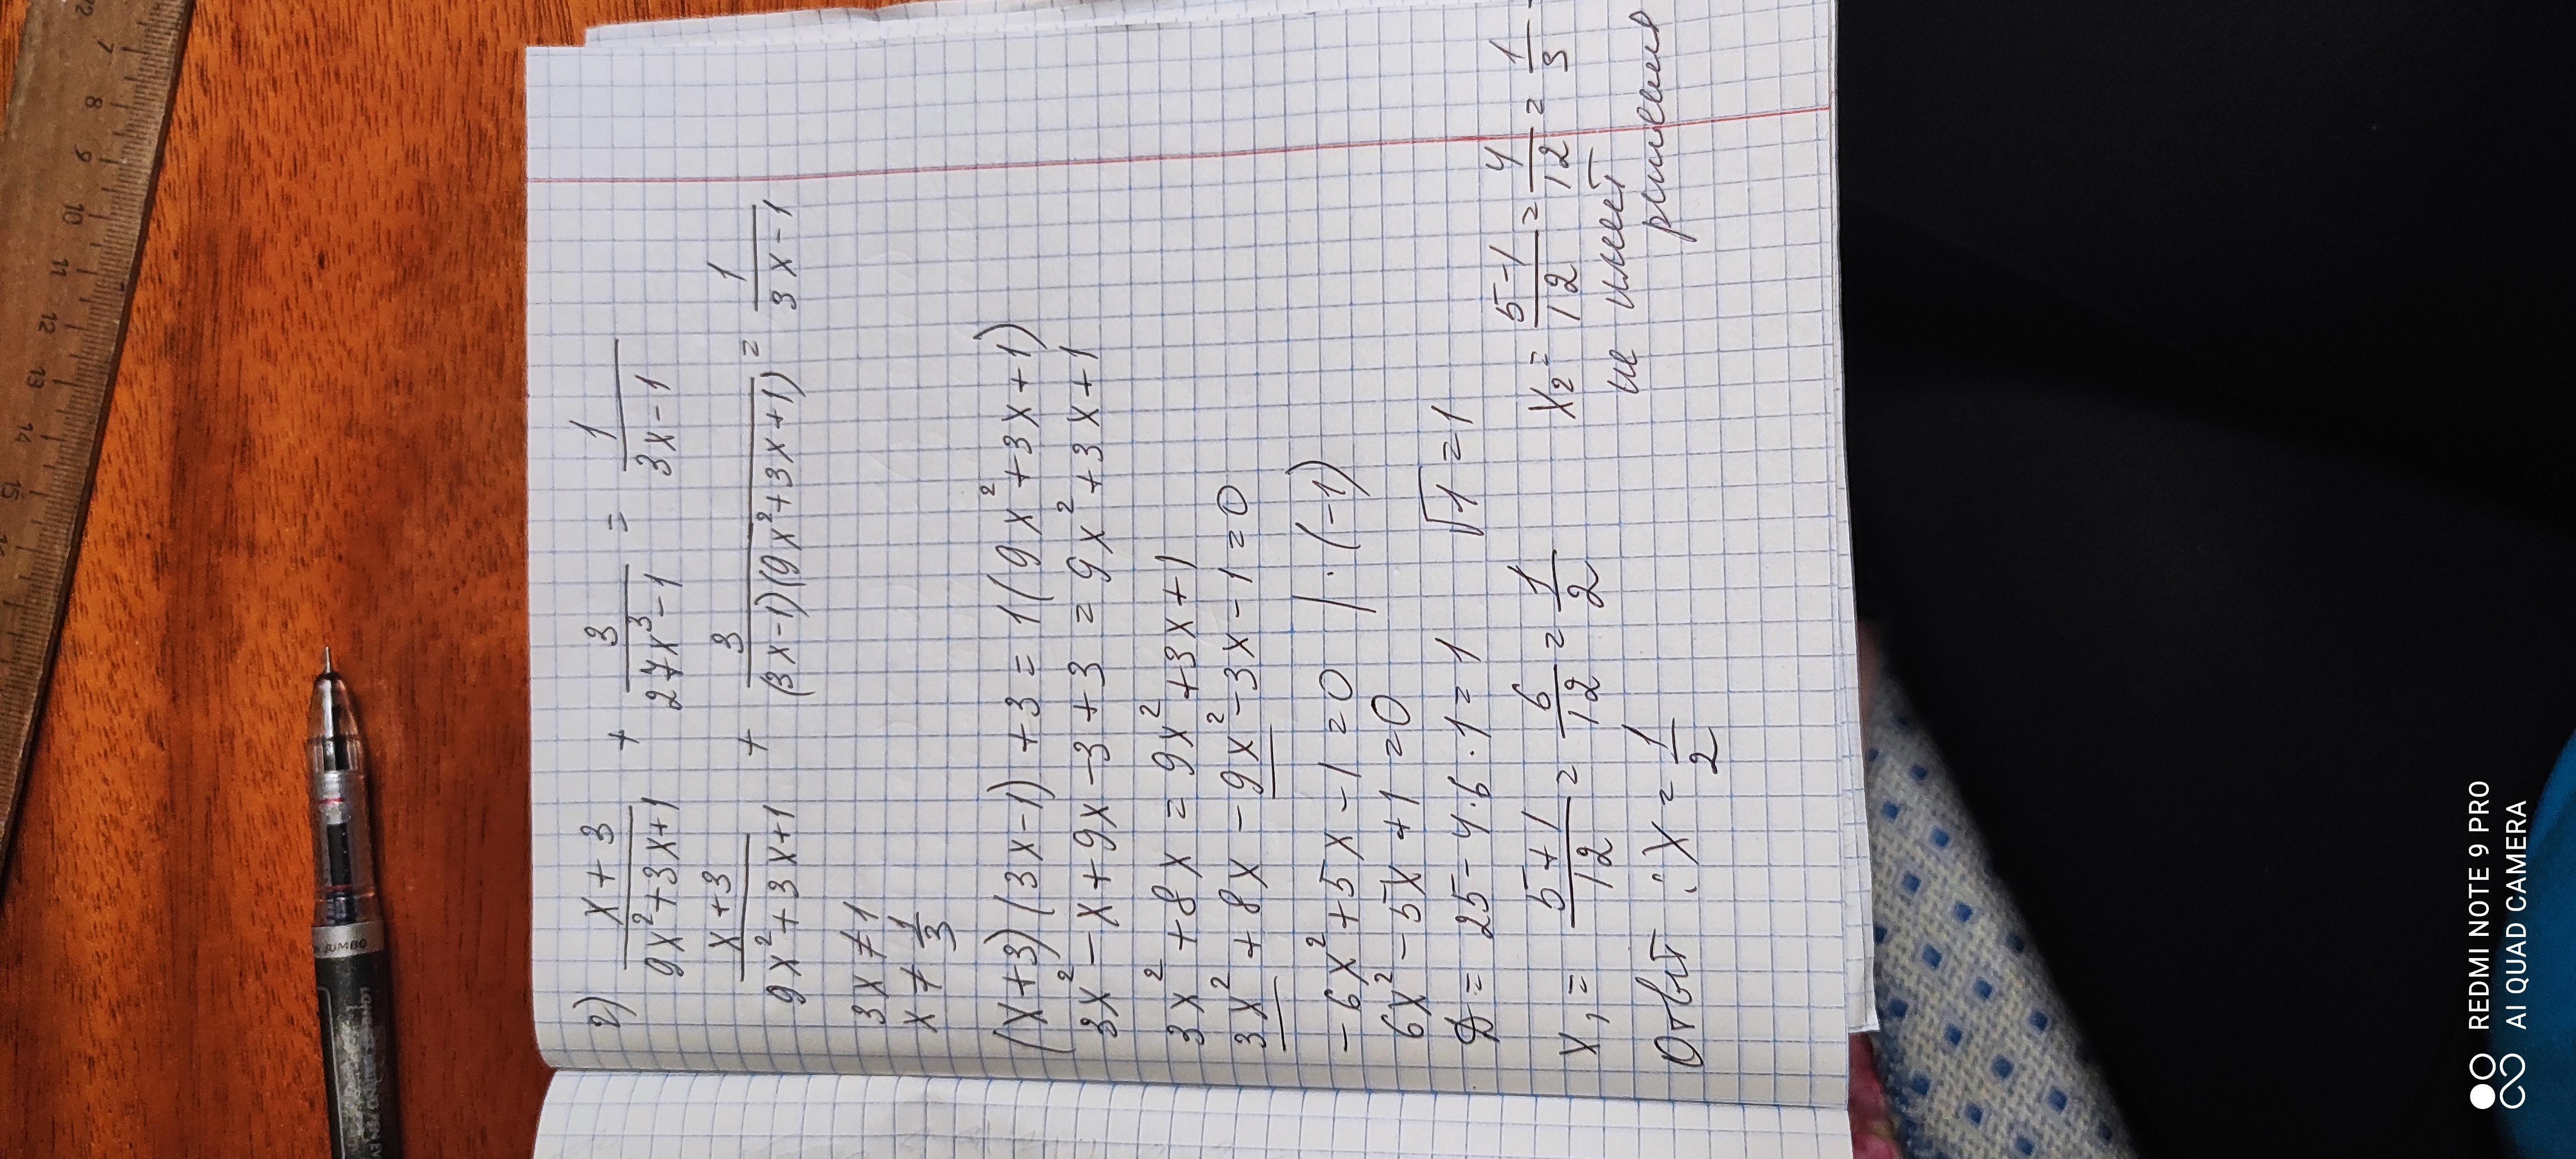 2) \frac{x+3}{9x^2+3x+1} + \frac{3}{27x^3-1} = \frac{1}{3x-1}
\frac{x+3}{9x^2+3x+1} + \frac{3}{(3x-1)(9x^2+3x+1)} = \frac{1}{3x-1}
3x ≠ 1
x ≠ \frac{1}{3}
(x+3)(3x-1)+3=1(9x^2+3x+1)
3x^2-x+9x-3+3=9x^2+3x+1
3x^2+8x=9x^2+3x+1
3x^2+8x-9x^2-3x-1=0
-6x^2+5x-1=0 |·(-1)
6x^2-5x+1=0
D=25-4·6·1=1 √1=1
x_1=\frac{5+1}{12}=\frac{6}{12}=\frac{1}{2} x_2=\frac{5-1}{12}=\frac{4}{12}=\frac{1}{3} -
не имеет
решения
Ответ: x=\frac{1}{2}
7 8 9 10 11 12 13 14 15
JUMBO
REDMI NOTE 9 PRO
AI QUAD CAMERA